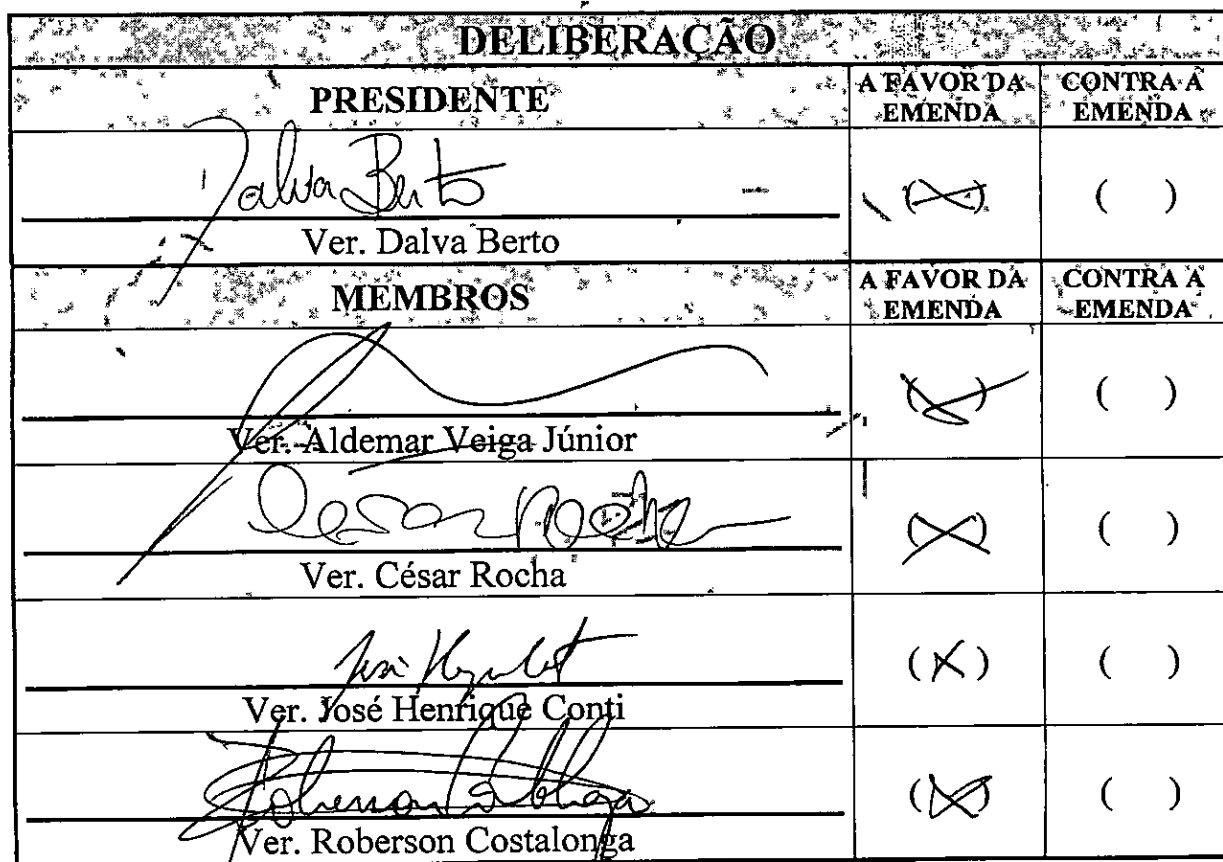 DELIBERAÇÃO
PRESIDENTE
A FAVOR DA EMENDA
CONTRA A EMENDA
Dalva Berto
(X)
( )
Ver. Dalva Berto
MEMBROS
A FAVOR DA EMENDA
CONTRA A EMENDA
(X)
( )
Ver. Aldemar Veiga Júnior
Cesar Rocha
(X)
( )
Ver. César Rocha
(X)
( )
Ver. José Henrique Conti
(X)
( )
Ver. Roberson Costalonga